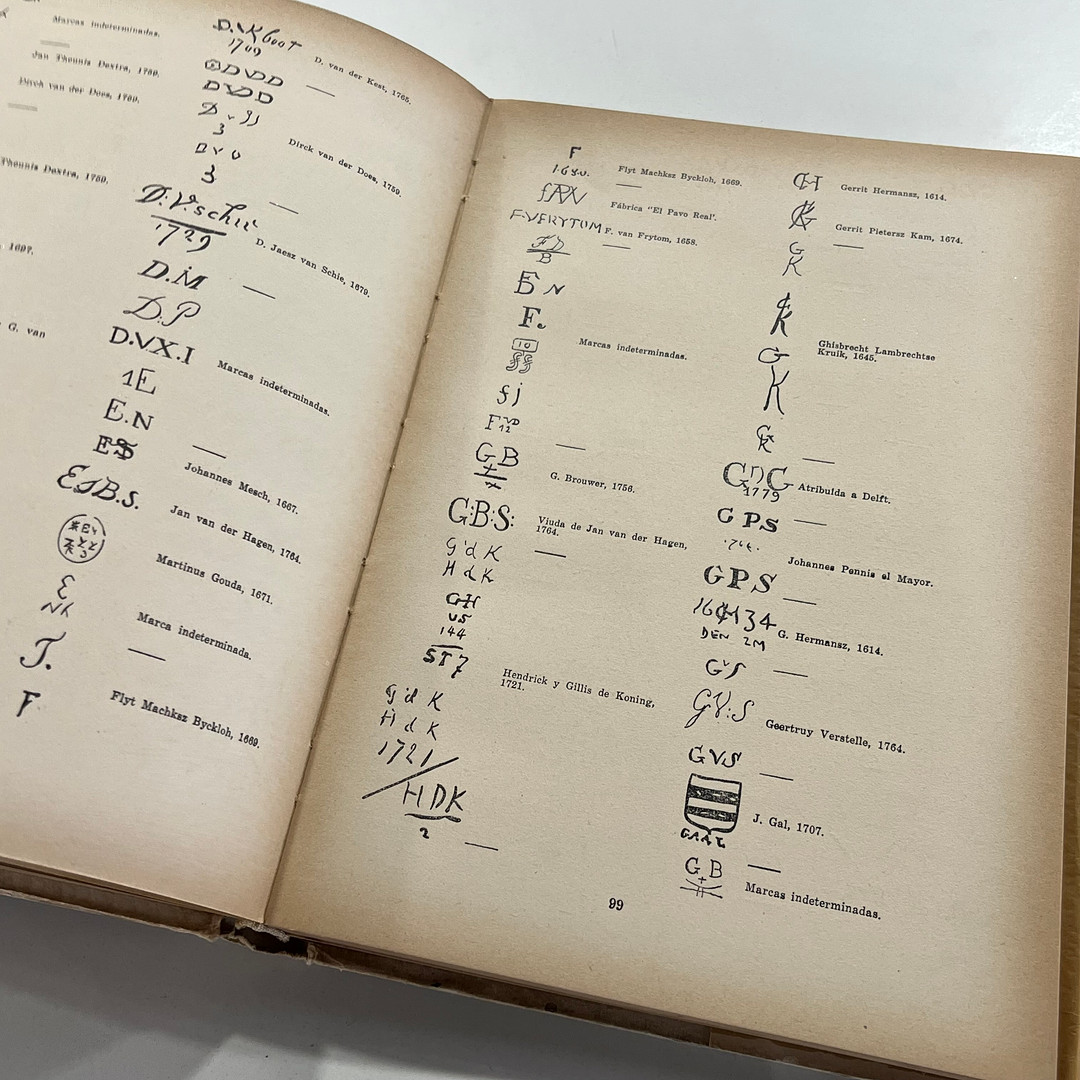 Marcas indeterminadas.
Jan Theunis Dextra, 1759.
Dirck van der Does, 1759.
Theunis Dextra, 1759.
1697.
G. van
D.VK boot
1709
D. van der Kest, 1765.
DVDD
DVDD
D v
3
D v D
3
Dirck van der Does, 1759.
D:V:schie
1729
D. Jaesz van Schie, 1679.
D.M
D.P
D.VX.I
Marcas indeterminadas.
1E
E.N
ES
Johannes Mesch, 1667.
EJB.S.
Jan van der Hagen, 1764.
Martinus Gouda, 1671.
E
NK
Marca indeterminada.
F
Flyt Machksz Byckloh, 1669.
F
Flyt Machksz Byckloh, 1669.
Fábrica "El Pavo Real'.
F·VFRYTOM
F. van Frytom, 1658.
B
N
F.
10
Marcas indeterminadas.
F VD
12
GB
G. Brouwer, 1756.
G:B:S:
Viuda de Jan van der Hagen,
1764.
G d K
H d K
GH
VS
144
ST7
Hendrick y Gillis de Koning,
1721.
G d K
H d K
1721
HDK
2
Gerrit Hermansz, 1614.
Gerrit Pietersz Kam, 1674.
G
K
Ghisbrecht Lambrechtse
Kruik, 1645.
G
K
GDG
1779
Atribuída a Delft.
G PS
Johannes Pennis el Mayor.
GPS
16 GH 34
DEN 2M
G. Hermansz, 1614.
GVS
GV:S
Geertruy Verstelle, 1764.
GVS
J. Gal, 1707.
GAAL
GB
Marcas indeterminadas.
99